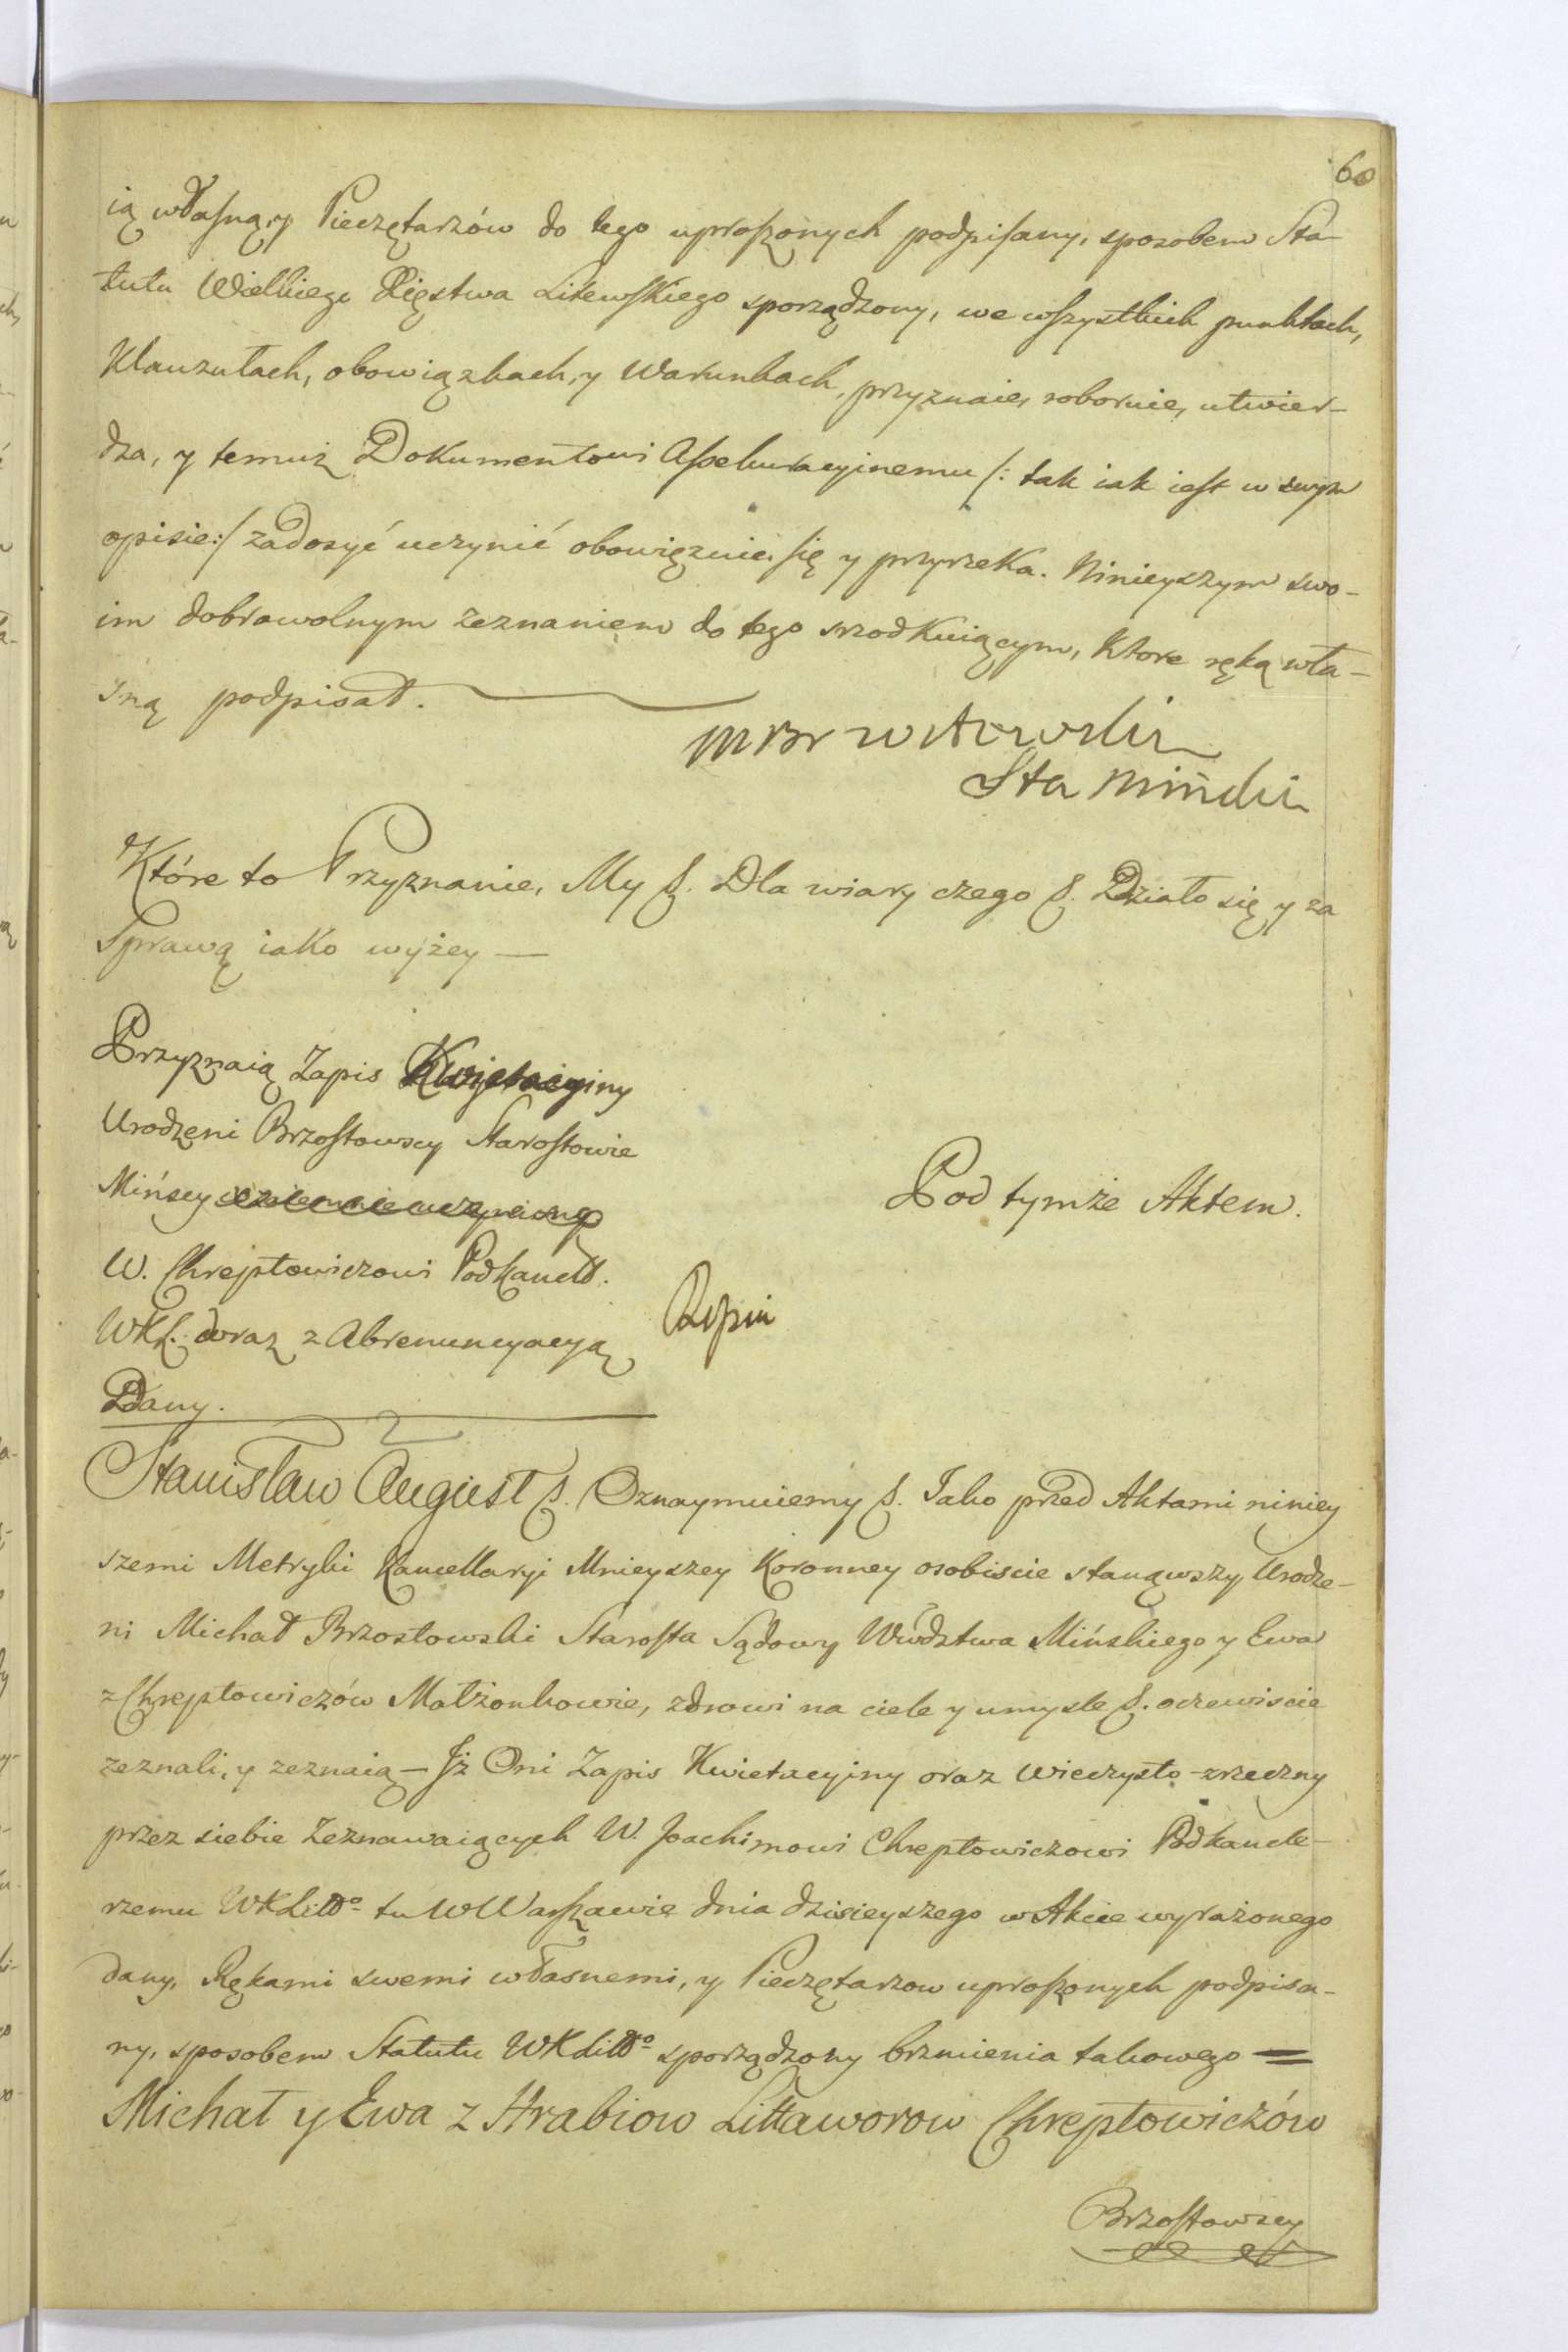 60
ią własną, y Pieczętarzów do tego uproszonych podpisany, sposobem Sta-
tutu Wielkiego Xięstwa Litewskiego sporządzony, we wszystkich punktach,
Klauzułach, obowiązkach, y Warunkach, przyznaie, roboruie, utwier-
dza, y temuż Dokumentowi Assekuracyinemu /: tak iak iest w swym
opisie :/ zadosyć uczynić obowięzuie się y przyrzeka. Ninieyszym swo-
im dobrowolnym zeznaniem do tego srzodkuiącym, Ktore ręką wła-
sną podpisał.
Sta Miński
Które to Przyznanie, My &. Dla wiary czego &. Działo się y za
Sprawą iako wyżey —
Przyznaią Zapis Kwietacyiny
Urodzeni Brzostowscy Starostowie
Mińscy
W. Chreptowiczowi Podkancl.
WXL. oraz z Abrenuncyacyą
Dany.
Pod tymże Aktem.
Stanisław August &. Oznaymuiemy &. Jako przed Aktami niniey
szemi Metryki Kancellaryi Mnieyszey Koronney osobiscie stanąwszy, Urodze-
ni Michał Brzostowski Starosta Sądowy Wwdztwa Mińskiego y Ewa
z Chreptowiczów Małżonkowie, zdrowi na ciele y umysle &. oczewiscie
zeznali, y zeznaią — Jż Oni Zapis Kwietacyiny oraz wieczysto-zrzeczny
przez siebie Zeznawaiących W. Joachimowi Chreptowiczowi Podkancle-
rzemu WXLittº tu w Warszawie dnia dzisieyszego w Akcie wyrażonego
dany, Rękami swemi własnemi, y Pieczętarzow uproszonych podpisa-
ny, sposobem Statutu WXLittº sporządzony brzmienia takowego =
Michał y Ewa z Hrabiow Littaworow Chreptowiczów
Brzostowscy